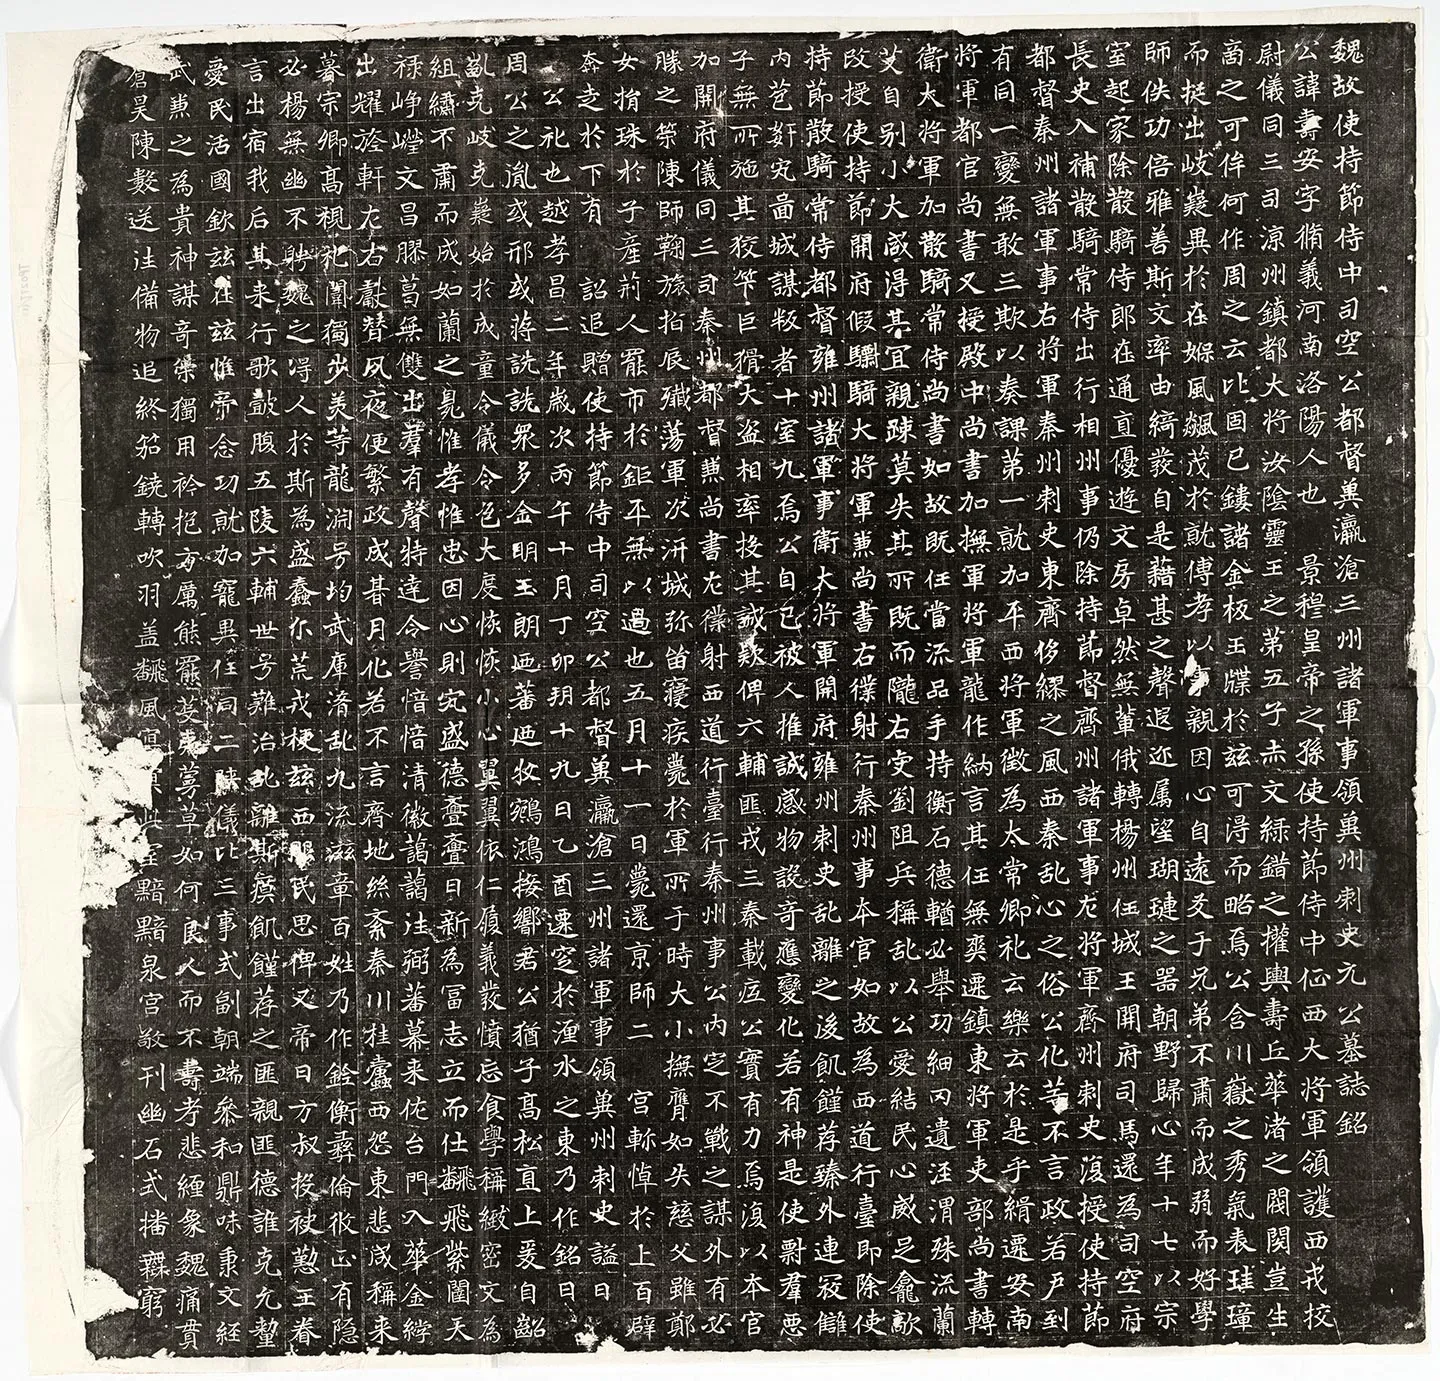 魏故使持節侍中司空公都督冀瀛滄三州諸軍事領冀州刺史元公墓誌銘
公諱壽安字脩義河南洛陽人也　景穆皇帝之孫使持節侍中征西大將軍領護西戎校
尉儀同三司涼州鎮都大將汝陰靈王之第五子赤文綠錯之權輿壽丘華渚之閥閱豈生
商之可侔何作周之云比固已鏤諸金板玉牒於茲可得而略焉公含川嶽之秀氣表珪璋
而挺出岐嶷異於在緥風飆茂於就傅孝以事親因心自遠友于兄弟不肅而成弱而好學
師佚功倍雅善斯文率由綺發自是藉甚之聲遐迩属望瑚璉之器朝野歸心年十七以宗
室起家除散騎侍郎在通直優遊文房卓然無輩俄轉楊州任城王開府司馬還為司空府
長史入補散騎常侍出行相州事仍除持節督齊州諸軍事左將軍齊州刺史復授使持節
都督秦州諸軍事右將軍秦州刺史東齊侈繆之風西秦乱心之俗公化等不言政若戶到
有同一變無敢三欺以奏課第一就加平西將軍徵為太常卿礼云樂云於是乎緝遷安南
將軍都官尚書又授殿中尚書加撫軍將軍龍作納言其任無爽遷鎮東將軍吏部尚書轉
衛大將軍加散騎常侍尚書如故既任當流品手持衡石德輶必舉功細罔遺涇渭殊流蘭
艾自别小大咸得其宜親踈莫失其所既而隴右叓劉阻兵稱乱以公愛結民心威足龕敵
改授使持節開府假驃騎大將軍兼尚書右僕射行秦州事本官如故為西道行臺即除使
持節散騎常侍都督雍州諸軍事衛大將軍開府雍州刺史乱離之後飢饉荐臻外連寇讎
内苞姧宄啚城謀叛者十室九焉公自己被人推誠感物設奇應變化若有神是使剽羣惡
子無所施其狡笇巨猾大盗相率投其誠款俾六輔匪戎三秦載底公實有力焉復以本官
加開府儀同三司秦州都督兼尚書左僕射西道行臺行秦州事公内定不戰之謀外有必
勝之策陳師鞠旅指辰殲蕩軍次汧城弥留寢疾薨於軍所于時大小撫膺如失慈父雖鄭
女捐珠於子產荊人罷市於鉅平無以過也五月十一日喪還京師二　宮軫悼於上百辟
奔走於下有　詔追贈使持節侍中司空公都督冀瀛滄三州諸軍事領冀州刺史謚曰
公礼也越孝昌二年歲次丙午十月丁卯朔十九日乙酉遷窆於瀍水之東乃作銘曰
周公之胤或邢或蔣詵詵眾多金明玉朗迺蕃迺牧鵷鴻接嚮君公猶子高松直上爰自齠
齓克岐克嶷始於成童令儀令色大度恢恢小心翼翼依仁履義發憤忘食學稱緻密文為
組繡不肅而成如蘭之臰惟孝惟忠因心則宄盛德亹亹日新為冨志立而仕飜飛紫闥天
祿崢嶸文昌膠葛無雙出羣有聲特達令譽愔愔清徽藹藹往弼蕃幕来佐台門入華金綍
出耀旍軒左右獻替夙夜便繁政成朞月化若不言齊地絲紊秦川挂蠹西怨東悲咸稱来
暮宗卿高視祀闈獨步美等龍淵号均武庫淆乱九流滋章百姓乃作銓衡彝倫攸正有隐
必楊無幽不聘魏之得人於斯為盛蠢尒荒戎梗茲西服民思俾乂帝曰方叔投袂懃王眷
言出宿我后其来行歌鼓腹五陵六輔世号難治乱離斯瘼飢饉荐之匪親匪德誰克允釐
愛民活國欽茲在茲惟帝念功就加寵異任同二陜儀比三事式副朝端叅和鼎味秉文經
武兼之為貴神謀奇策獨用衿抱方厲熊羆芟夷蔓草如何良人而不壽考悲纏象魏痛貫
蒼昊陳數送往備物追終笳鐃轉吹羽盖飜風室黯黯泉宮敬刊幽石式播無窮